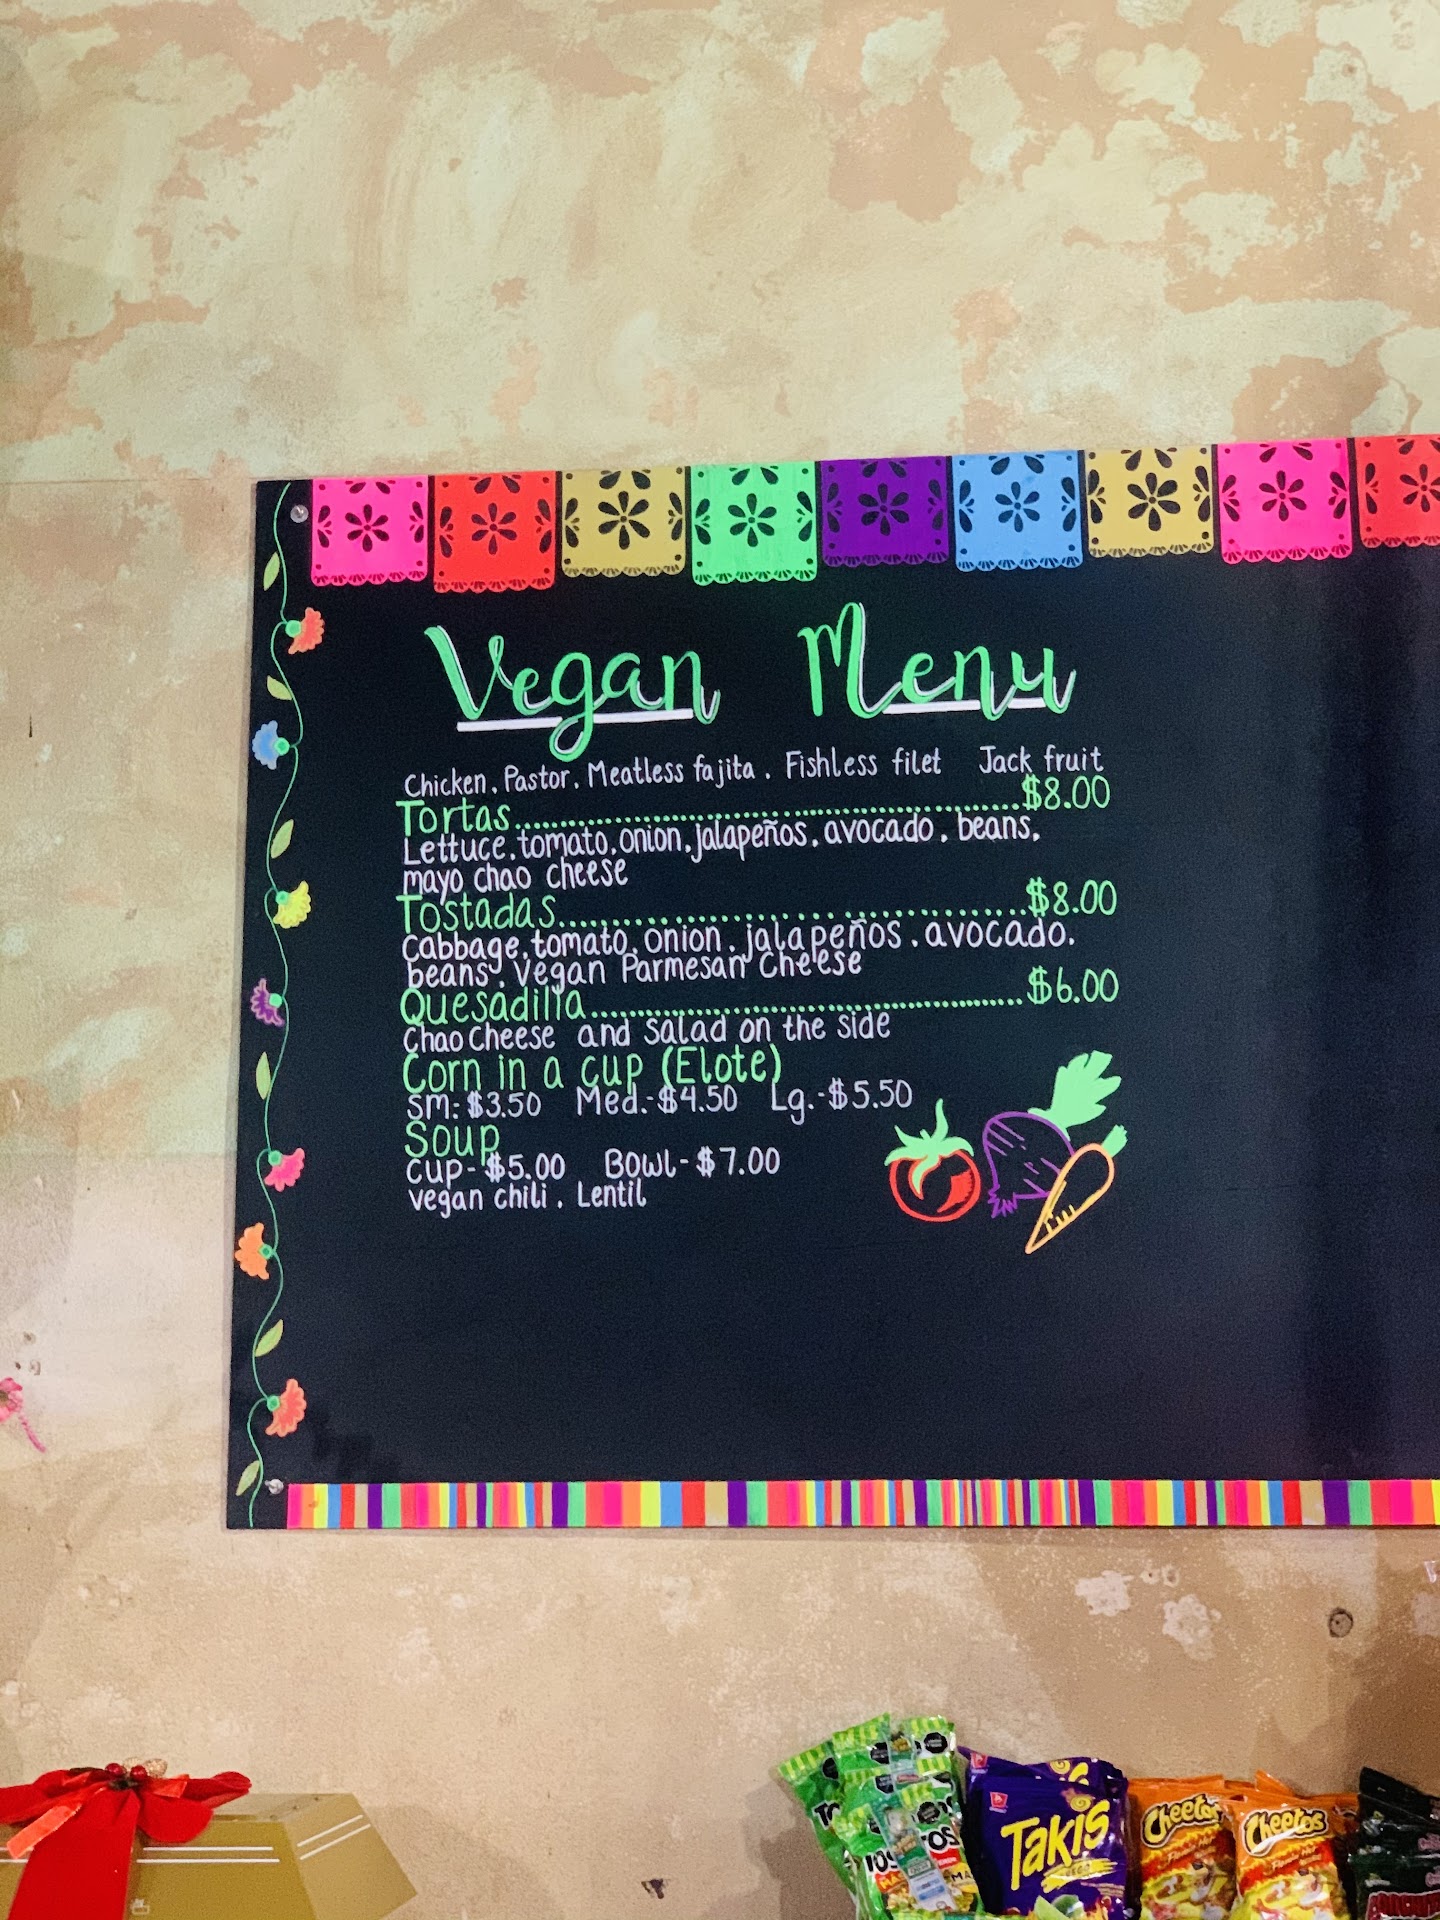 Vegan Menu
Chicken. Pastor. Meatless fajita. Fishless filet Jack fruit
Tortas $8.00
Lettuce. tomato. onion. jalapeños. avocado. beans.
mayo chao cheese
Tostadas $8.00
Cabbage. tomato. onion. jalapeños. avocado.
beans. vegan Parmesan Cheese
Quesadilla $6.00
Chao Cheese and Salad on the side
Corn in a cup (Elote)
sm: $3.50 Med.-$4.50 Lg.-$5.50
Soup
cup- $5.00 Bowl- $7.00
vegan chili. Lentil
Takis
Cheetos
Cheetos